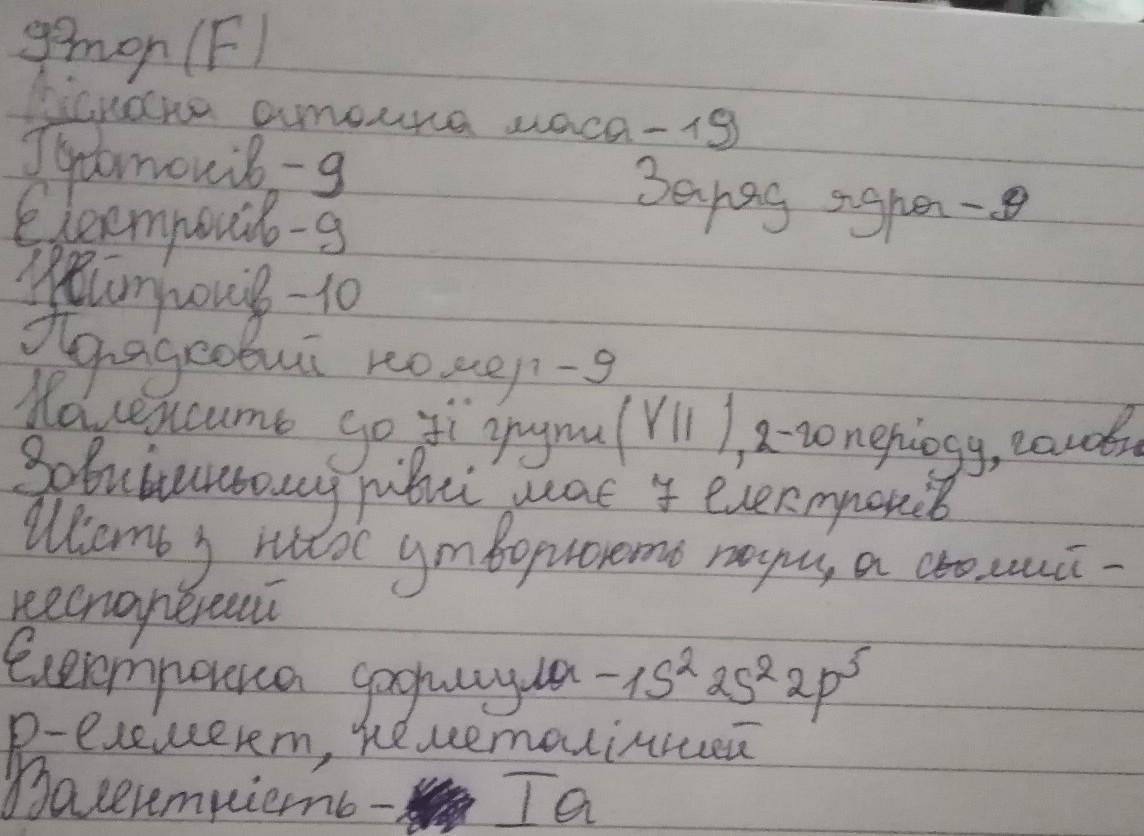 Фтор (F)
Відносна атомна маса - 19
Протонів - 9 Заряд ядра - 9
Електронів - 9
Нейтронів - 10
Порядковий номер - 9
Належить до 7ї групи (VII), 2-го періоду, головн
Зовнішньому рівні має 7 електронів
Шість з них утворюють пари, а сьомий -
неспарений
Електронна формула - 1S² 2S² 2p⁵
p-елемент, неметалічний
Валентність - I а